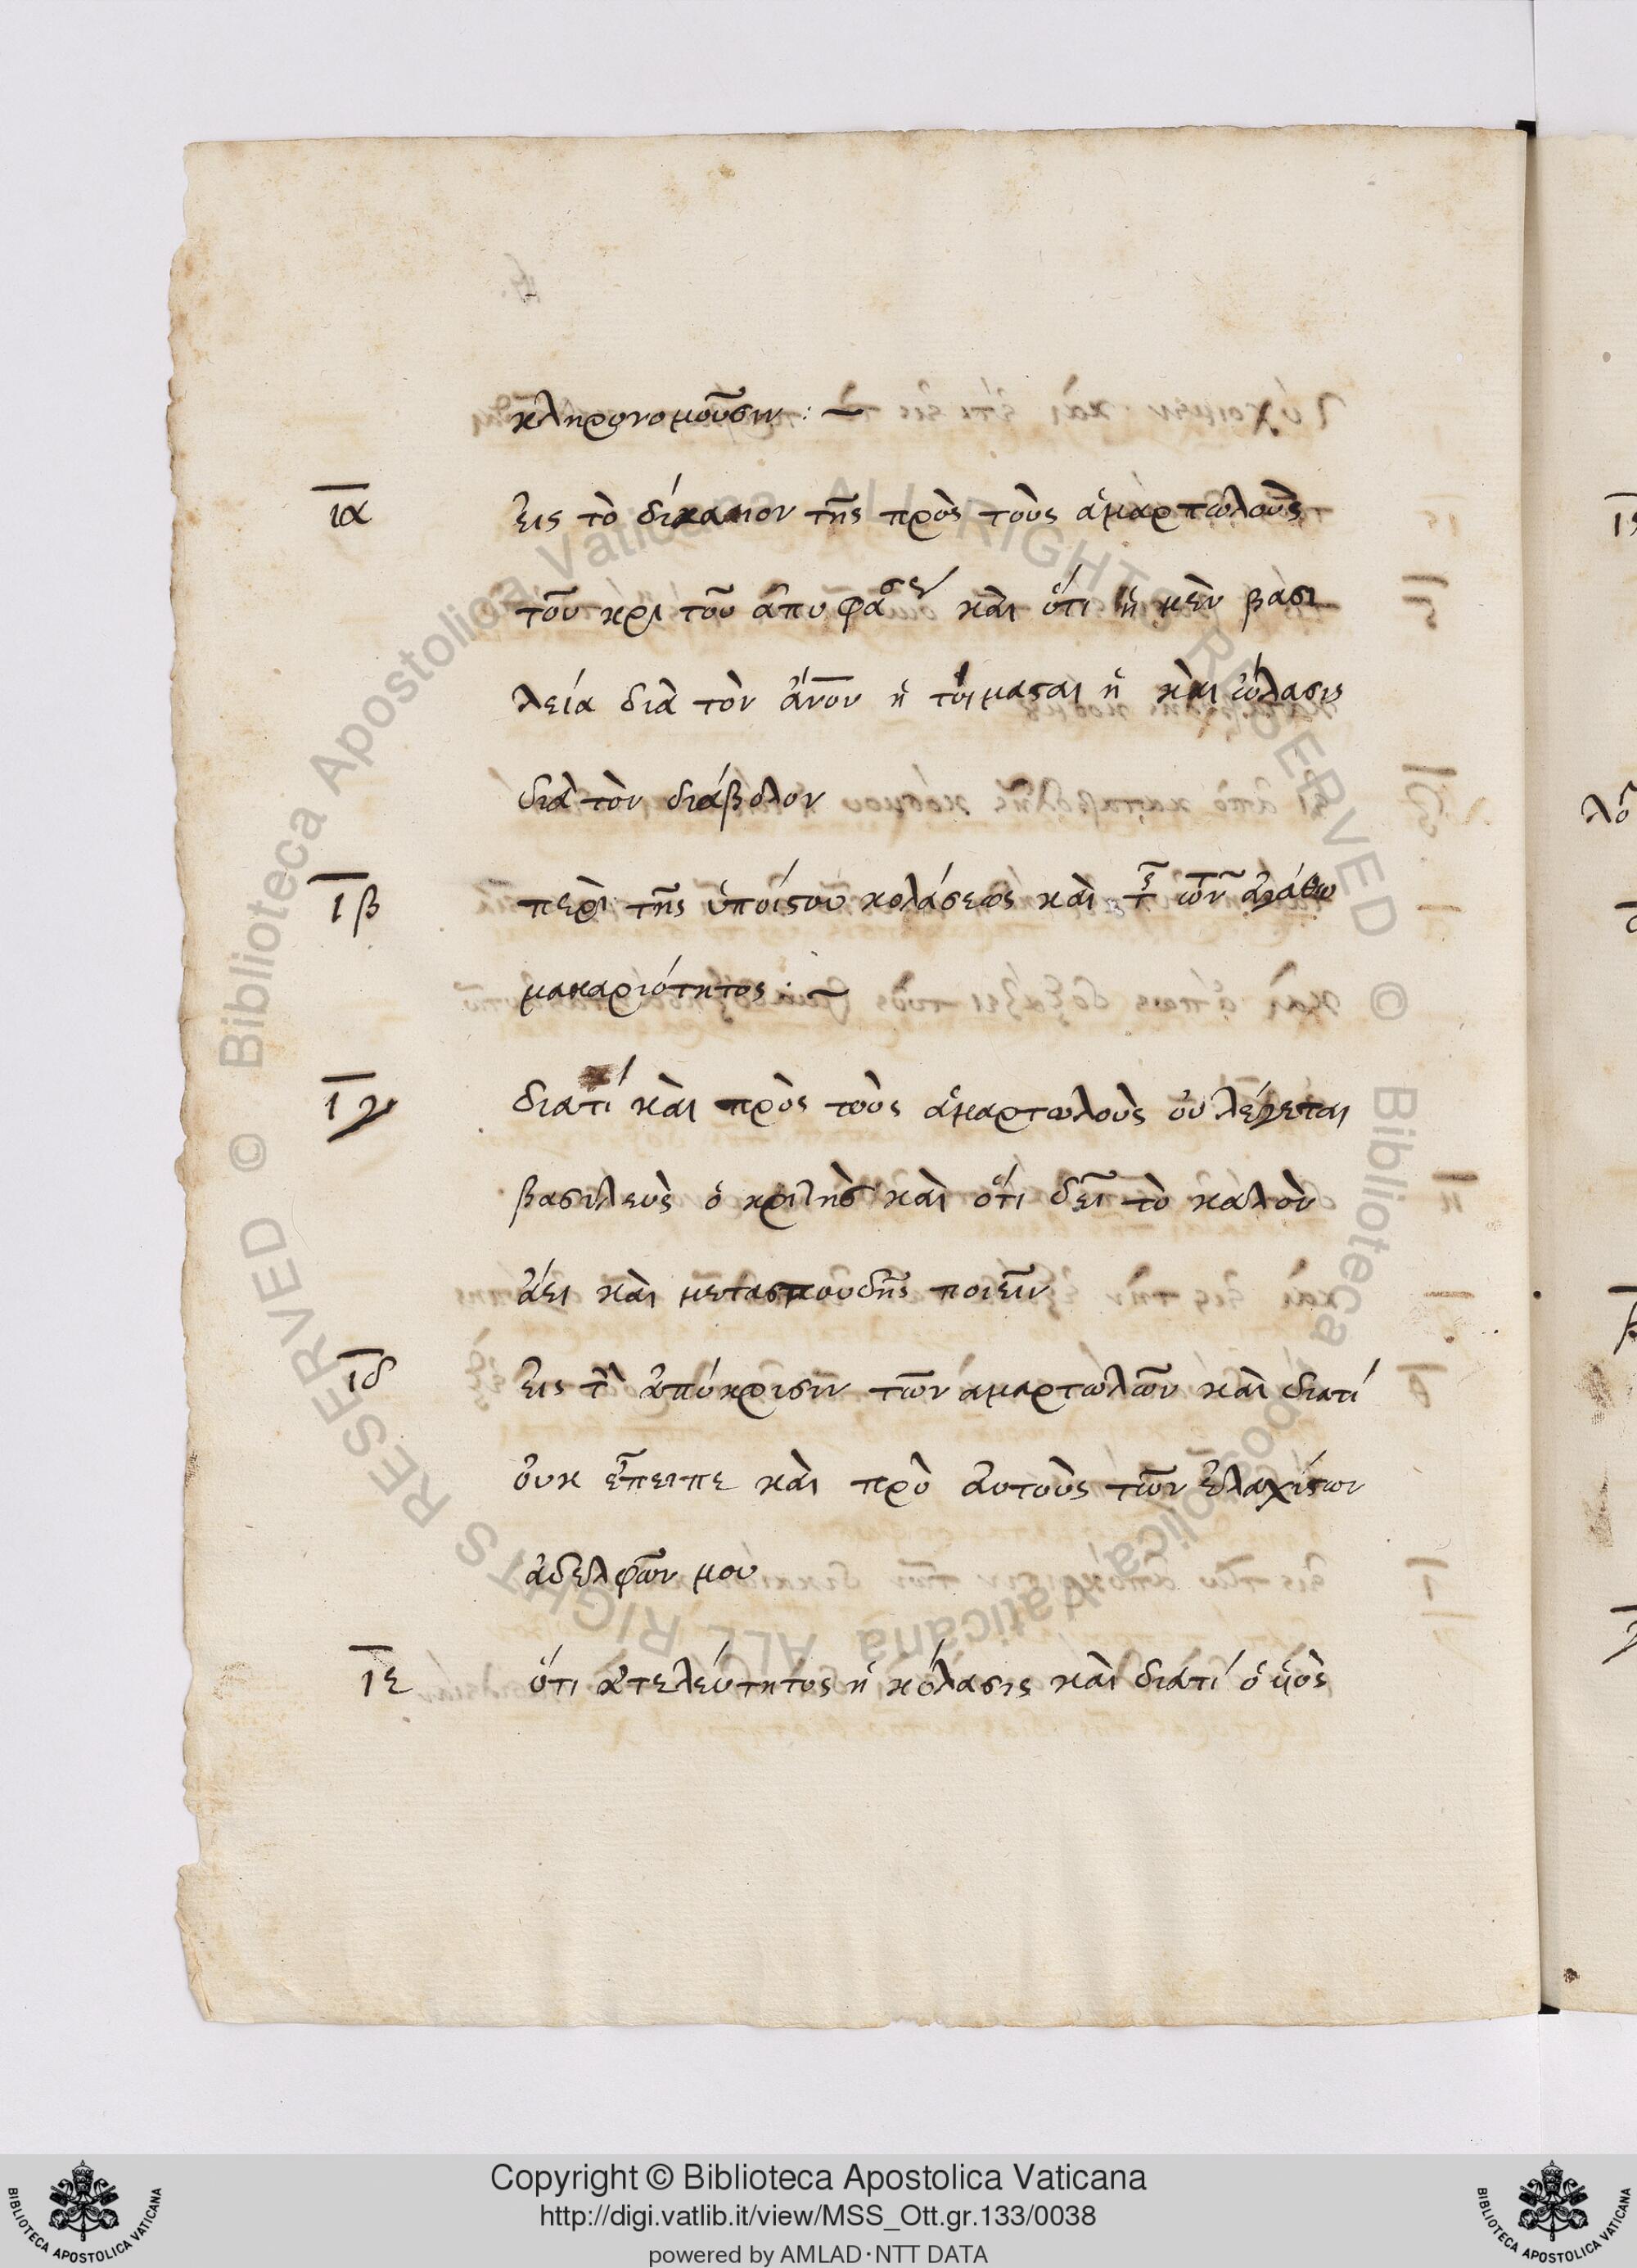 κληρονομοῦσιν : ~
ια εἰς τὸ δίκαιον τῆς πρὸς τοὺς ἁμαρτωλοὺς
τοῦ κρι τοῦ καὶ ὅτι ἡ μὲν βασι
λεία διὰ τὸν ἄνον ἡ τοίμασαι ἡ καὶ
διὰ τὸν διάβολον
ιβ περὶ τῆς κολάσεως καὶ τῶν
μακαριότητος : ~
ιγ διατί καὶ πρὸς τοὺς ἁμαρτωλοὺς οὐ λέγεται
βασιλεὺς ὁ κριτὴς καὶ ὅτι δεῖ τὸ καλὸν
ἀεὶ καὶ μετασπουδῆς ποιεῖν
ιδ εἰς τὴν ἀπόκρισιν τῶν ἁμαρτωλῶν καὶ διατί
οὐκ εἶπειπε καὶ πρὸ αὐτοὺς τῶν ἐλαχίστων
ἀδελφῶν μου
ιε ὅτι ἀτελεύτητος ἡ κόλασις καὶ διατί ὁ
© Biblioteca Apostolica Vaticana ALL RIGHTS RESERVED © Biblioteca Apostolica Vaticana ALL RIGHTS RESERVED
Copyright © Biblioteca Apostolica Vaticana
http://digi.vatlib.it/view/MSS_Ott.gr.133/0038
powered by AMLAD·NTT DATA
BIBLIOTECA APOSTOLICA VATICANA
BIBLIOTECA APOSTOLICA VATICANA